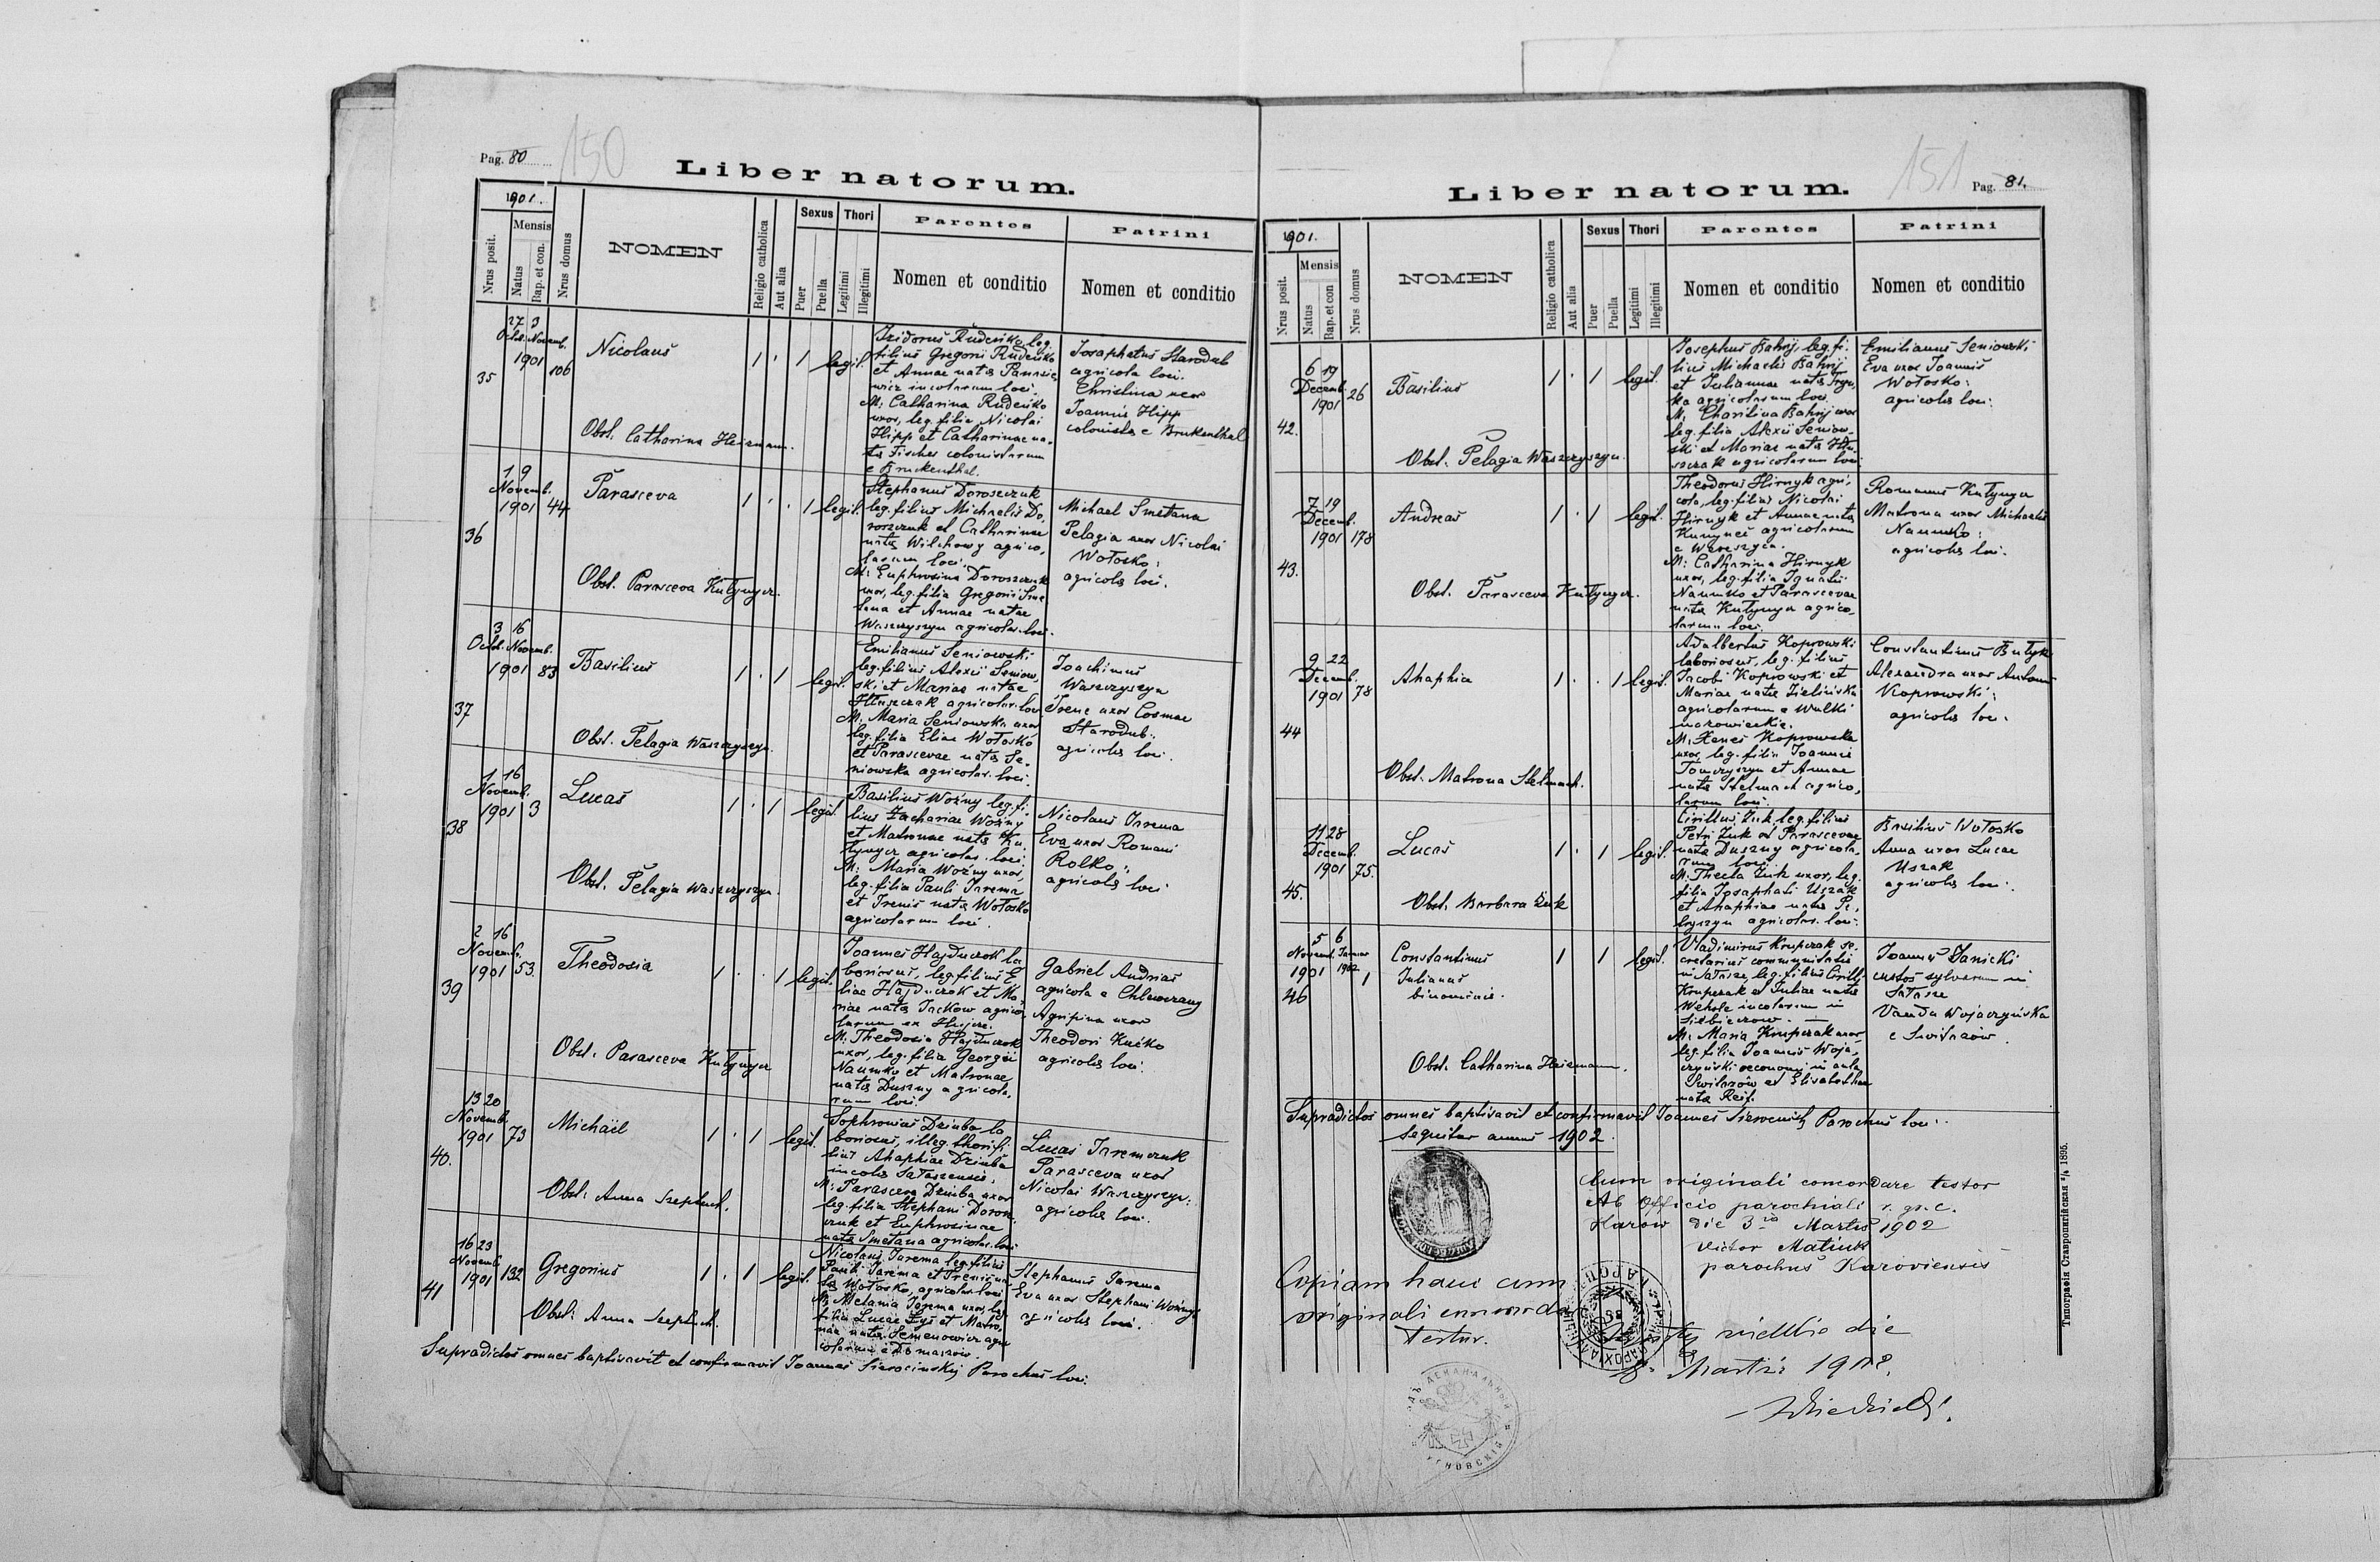 Pag. 80
150
Liber natorum.
1901.
Nrus posit.
Mensis
Natus
Bap. et con.
Nrus domus
NOMEN
Religio catholica
Aut alia
Sexus
Puer
Puella
Thori
Legitimi
Illegitimi
Parentes
Nomen et conditio
Patrini
Nomen et conditio
35
27 3
Octob. Novemb.
1901
106
Nicolaus
Obst. Catharina Heizmann.
1 . 1 legit.
Izidorus Rudeńko leg.
filius Gregorii Rudeńko
et Annae natae
incolarum loci.
M: Catharina Rudeńko
uxor, leg. filia Nicolai
Hipp et Catharinae na-
tae Fischer colonistarum
e Bruckenthal.
Josaphatus Starodub
agricola loci.
Christina uxor
Joannis Hipp
colonista e Brukenthal
36
1 9
Novemb.
1901 44
Parasceva
Obst. Parasceva Kułynycz.
1 . . 1 legit.
Stephanus Doroszczuk
leg. filius Michaelis Do-
roszczuk et Catharinae
natae Wilchowy agrico-
larum loci.
M: Euphrosina Doroszczuk
uxor, leg. filia Gregorii Sme-
tana et Annae natae
Waszczyszyn agricolar. loci.
Michael Smetana
Pelagia uxor Nicolai
Wołosko:
agricolae loci.
37
3 16
Octob. Novemb.
1901 83
Basilius
Obst. Pelagia Waszczyszyn.
1 . 1 legit.
Emilianus Seniowski
leg. filius Alexii Seniow-
ski et Mariae natae
Hłuszczak agricolar. loci
M. Maria Seniowska uxor
leg. filia Eliae Wołosko
et Parascevae natae Se-
niowska agricolar. loci.
Joachimus
Waszczyszyn
Irene uxor Cosmae
Starodub:
agricolae loci.
38
1 16
Novemb.
1901 3
Lucas
Obst. Pelagia Waszczyszyn.
1 . 1 legit.
Basilius Woźny leg. fi-
lius Zachariae Woźny
et Matronae natae Ku-
łynycz agricolar. loci.
M: Maria Woźny uxor,
leg. filia Pauli Jarema
et Irenis natae Wołosko
agricolarum loci.
Nicolaus Jarema
Eva uxor Romani
Rolko:
agricolae loci
39
2 16
Novemb.
1901 53.
Theodosia
Obst. Parasceva Kułynycz
1 . . 1 legit.
Joannes Hajduczok la-
boriosus, leg. filius E-
liae Hajduczok et Ma-
riae natae Jackow agrico-
larum ex Hujcze.
M: Theodosia Hajduczok
uxor, leg. filia Georgii
Naumko et Matronae
natae Duszny agricola-
rum loci.
Gabriel Andrias
agricola e Chlewczany
Agripina uxor
Theodori Kućko
agricolae loci.
40.
13 20
Novemb.
1901 73
Michaël
Obst. Anna Szeptuch.
1 . 1 legit.
Sophronius Dziuba la-
boriosus, illeg. thori fi-
lius Ahaphiae Dziuba
incolae Sałaszensis.
M: Parasceva Dziuba uxor
leg. filia Stephani Dorosz-
czuk et Euphrosinae
natae Smetana agricolar. loci
Lucas Jaremczuk
Parasceva uxor
Nicolai Waszczyszyn:
agricolae loci.
41
16 23
Novemb.
1901 132
Gregorius
Obst. Anna Szeptuch.
1 . 1 legit.
Nicolaus Jarema leg. filius
Pauli Jarema et Irenis na-
tae Wołosko, agricolar. loci
M: Melania Jarema uxor, leg.
filia Lucae Łyś et Matro-
nae natae Semenowicz agri-
colarum e Domaszow.
Stephanus Jarema
Eva uxor Stephani Woźny:
agricolae loci.
Supradictos omnes baptisavit et confirmavit Joannes Sierocinskij Parochus loci.
151
Liber natorum.
Pag. 81.
1901.
Nrus posit.
Mensis
Natus
Bap. et con
Nrus domus
NOMEN
Religio catholica
Aut alia
Sexus
Puer
Puella
Thori
Legitimi
Illegitimi
Parentes
Nomen et conditio
Patrini
Nomen et conditio
42.
6 19
Decemb.
1901 26
Basilius
Obst. Pelagia Waszczyszyn.
1 . 1 legit.
Josephus Bahrij, leg. fi-
lius Michaelis Bahrij
et Julianae natae
agricolarum loci.
M, Charitina Bahrij uxor
leg. filia Alexii Seniow-
ski et Mariae natae Hłu-
szczak agricolarum loci.
Emilianus Seniowski
Eva uxor Joannis
Wołosko:
agricolae loci.
43.
7 19
Decemb.
1901 178
Andreas
Obst. Parasceva Kułynycz.
1 . 1 legit.
Theodorus Hirnyk agri-
cola, leg. filius Nicolai
Hirnyk et Annae natae
Kunyneć agricolarum
e Wereszyca.
M: Catharina Hirnyk
uxor, leg. filia Ignatii
Naumko et Parascevae
natae Kułynycz agrico-
larum loci.
Romanus Kułynycz
Matrona uxor Michaelis
Naumko:
agricolae loci.
44
9 22
Decemb.
1901 78
Ahaphia
Obst. Matrona Stelmach.
1 . . 1 legit.
Adalbertus Koprowski
laboriosus, leg. filius
Jacobi Koprowski et
Mariae natae Zielińska
agricolarum e Wulki
mazowieckie.
M, Xenes Koprowska
uxor, leg. filia Joannis
Tomczyszyn et Annae
natae Stelmach agrico-
larum loci.
Constantinus Butyk
Alexandra uxor Antonii
Koprowski:
agricolae loci.
45.
11 28
Decemb.
1901 75.
Lucas
Obst. Barbara Żuk
1 . 1 legit.
Cirillus Żuk, leg. filius
Petri Żuk et Parascevae
natae Duszny agricola-
rum loci.
M: Thecla Żuk uxor, leg.
filia Josaphati Uszak
et Ahaphiae natae Pe-
łyszyn agricolar. loci.
Basilius Wołosko
Anna uxor Lucae
Uszak
agricolae loci.
46
5 6
Novemb. Januar
1901 1902 1
Constantinus
Julianus
binominis.
Obst. Catharina Heizmann.
1 1 legit.
Vladimirus Krupczak se-
cretarius communitatis
in Sałasze, leg. filius Cirilli
Krupczak et Juliae natae
Wehota incolarum in
M: Maria Krupczak uxor
leg. filia Joannis Woja-
czyński oeconomi in aula
Switazów et Elisabethae
nata Reif.
Joannes Janicki
custos sylvarum in
Sałasze
Vanda Wojaczyńska
e Switazów.
Supradictos omnes baptisavit et confirmavit Joannes Sierocinskij Parochus loci.
Sequitur annus 1902.
Cum originali concordare testor
Ab Officio parochiali r. gr. c.
Karow die 3 Martis 1902
Victor Matiuk
parochus Karoviensis
Copiam hanc cum
originali concordare
testor.
die
Martii 1902.
Типографія Ставропигійская 1895.